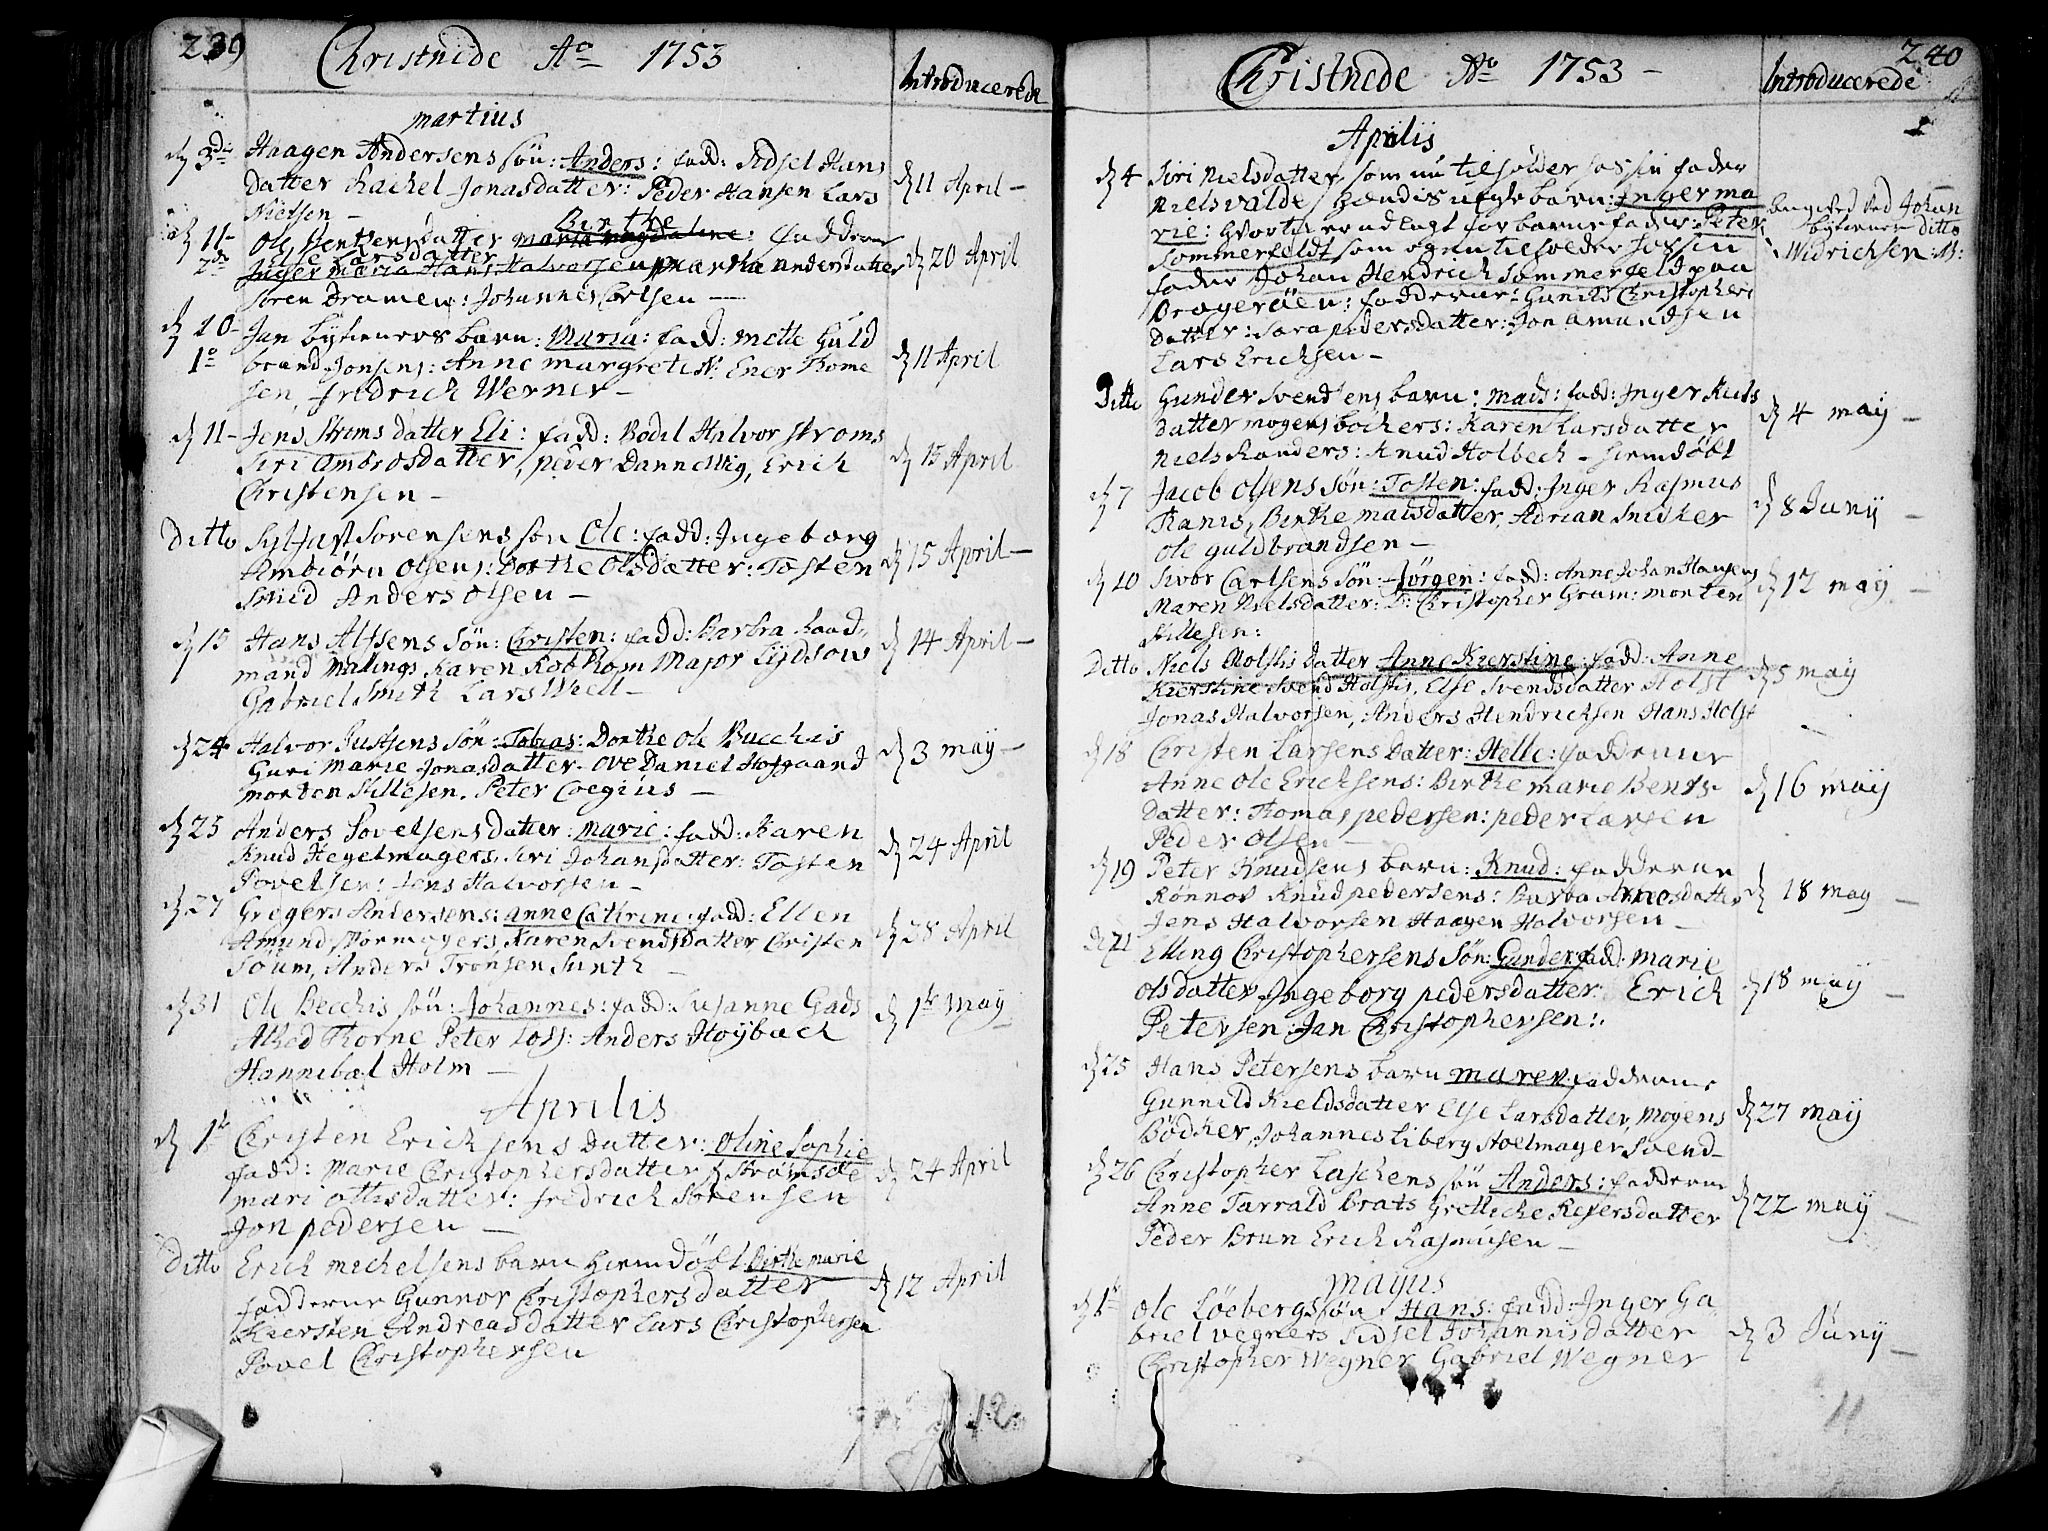 239
Christnede Ao 1753
Introducerede
martius
d 3die Haagen Andersens sön: Anders: fadd: Sidsel Hans
datter Rachel Jonasdatter: Peder Hansen Lars
Nielsen —
d 11 April —
d 11 — Ole datter Birthe maria magdalene: faddere
Else Larsdatter
Inger Maria Hans Halvorsen martha Andersdatter
Sören Dramen: Johannes Carlsen —
d 20 April
d 10 — Jan bytieners barn: Maria: fadd: Mette Guld
1o brand Jonsens: Anne margrete N: Ener Thome
sen, fredrich Werner —
d 11 April
d 11 — Jens Ströms datter Eli: fadd: Bodil Halvor Ströms
Siri Ambrosdatter, peder Dannevig, Erich
Christensen —
d 15 April
Ditto Sylfast Sörensens sön Ole: fadd: Ingeborg
Ambiörn Olsens: Dorthe Olsdatter: Tosten
Smed Anders Olsen —
d 15 April —
d 15 Hans Alfsens sön: Christen: fadd: Barbra Raad
mand Mallings Karen Rob Thom Major Sÿdsow
Gabriel Smith Lars Well —
d 14 April —
d 24 Halvor Justsens sön: Tobias: Dorthe Ole Bucchis
Guri Marie Jonasdatter. Ove Daniel Hofgaard
morten Stillesen. Peter Coegius —
d 3 may —
d 25 Anders Povelsens datter: Marie: fadd: Karen
Knud Hegelmagers. Siri Johansdatter: Tosten
Povelsen: Jens Halvorsen —
d 24 April
d 27 Gregers Andersens: Anne Cathrine: fadd: Ellen
Amund Spormagers, Karen Svendsdatter, Christen
Söum, Anders Tronsen Sunth —
d 28 April
d 31 Ole Becchis sön: Johannes: fadd: Susanne Gads
Thorne Peter Loss: Anders Hoÿbach
Hannibal Holm —
d 1te May
Aprilis
d 1te Christen Erichsens Datter: Oline Sophie
fadd: Marie Christophersdatter Strömsöe
mari ottisdatter: fredrich Sörensen
Jon pedersen —
d 24 April
Ditto Erich michelsens barn hiemdöbt Birthe marie
fadderne Gunnor Christophersdatter
Kiersten Andreasdatter Lars Christophersen
Povel Christophersen
d 12 April
12
240
Christnede Ao 1753 —
Introducerede
Aprilis
d 4 Siri Nielsdatter, som nu tilholder hos sin fader
Niels valde hendis uegte barn: Inger ma
rie: hvortil er udlagt for barnefader: Peter
Sommerfeldt som ogsaa tilholder hos sin
fader Johan Hendrich Sommerfeld paa
Brageröen: fadderne: Gunild Christophers
datter: Sara pedersdatter: Jon Amundsen
Lars Erichsen —
ved Johan
bytiener ditto
Widrichsen: M:
Ditto Gunder Svendsens barn: Mads: fadd: Inger Niels
datter mogens böchers: Karen Larsdatter
Niels Randers: Knud Holbech — hiemdöbt
d 4 maÿ —
d 7 Jacob Olsens sön: Tosten: fadd: Inger Rasmus
Kanis, Birthe madsdatter, Adrian Snidker
Ole guldbrandsen —
d 8 Junÿ —
d 10 Sivor Carlsens sön: Jörgen: fadd: Anne Johan Hansens
Maren Nielsdatter: D: Christopher Gram: morten
Stillesen:
d 12 may —
Ditto Niels Holstis datter Anne Kierstine: fadd: Anne
Kierstine Svend Holstis, Else Svendsdatter Holst
Jonas Halvorsen, Anders Hendrichsen Hans Holst
d 5 may
d 18 Christen Larsens datter: Helle: fadderne
Anne Ole Erichsens: Birthe marie Bents
datter: Thomas pedersen: peder Larsen
Peder Olsen —
d 16 maÿ
d 19 Peter Knudsens barn: Knud: fadderne
Rönnov Knud pedersens: Barba Arnesdatter
Jens Halvorsen Haagen Halvorsen —
d 18 may —
d 21 Elling Christophersens sön: Gunder: fadd: Marie
olsdatter Ingeborg pedersdatter: Erich
Petersen: Jan Christophersen:
d 18 maÿ —
d 25 Hans Petersens barn maren: fadderne
Gunnild Kieldsdatter Else Larsdatter, Mogens
Bödker, Johannes Liberg Stoelmager Svend —
d 27 maÿ
d 26 Christopher Laschens sön Anders: fadderne
Anne Tarrald Brats Gretliche Reiersdatter
Peder Brun Erich Rasmusen —
d 22 maÿ —
Majus
d 1te Ole Löebergs sön Hans: fadd: Inger Ga
briel Wegners Sidsel Johannisdatter
Christopher Wegner Gabriel Wegner
d 3 Junÿ —
11